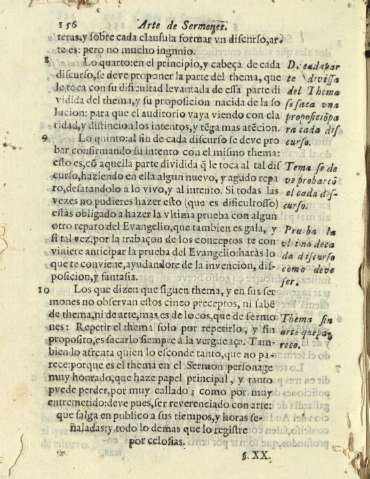 156 Arte de Sermones.
teras, y sobre cada clausula formar vn discurso, ar
te es: pero no mucho ingenio.
8 Lo quarto: en el principio, y cabeça de cada
discurso, se deve proponer la parte del thema, que
le toca con su dificultad levantada de essa parte di
vidida del thema, y su proposicion nacida de la so
lucion: para que el auditorio vaya viendo con cla
ridad, y distincion los intentos, y tẽga mas atẽcion.
9 Lo quinto: al fin de cada discurso se deve pro
bar confirmando su intento con el mismo thema:
esto es, cõ aquella parte dividida q̃ le toca al tal dis
curso, haziendo en ella algun nuevo, y agudo repa
ro, desatandolo a lo vivo, y al intento. Si todas las
vezes no pudieres hazer esto (que es dificultoso)
estàs obligado a hazer la vltima prueba con algun
otro reparo del Evangelio, que tambien es gala, y
si tal vez por la trabaçon de los conceptos te con
viniere anticipar la prueba del Evangelio haràs lo
que te conviene, ayudandote de la invencion, dis-
posicion, y fantasia.
10 Los que dizen que siguen thema, y en sus ser
mones no observan estos cinco preceptos, ni sabẽ
de thema, ni de arte, mas es de locos, que de sermo
nes: Repetir el thema solo por repetirlo, y sin
proposito, es sacarlo siempre a la verguẽça. Tam-
bien lo afrenta quien lo esconde tanto, que no pa-
rece: porque es el thema en el Sermon personage
muy honrado, que haze papel principal, y tanto
puede perder, por muy callado, como por muy
entremetido: deve pues, ser reverenciado con arte:
que salga en publico a sus tiempos, y horas se-
ñaladas: y todo lo demas que lo registre
por celosias.
§. XX.
D. cada par
te divisa
del Thema
se saca vna
proposiciõ pa
ra cada dis
curso.
Tema se de
ve probar cõ
el cada dis-
curso.
Prueba la
vltima de ca
da discurso
como deve
ser.
Thema sin
arte